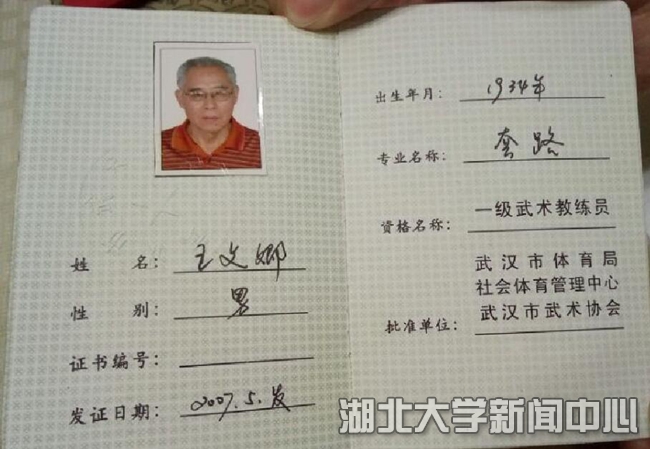 姓 名: 王文卿
性 别: 男
证书编号:
发证日期: 2007.5.发
出生年月: 1934年
专业名称: 套路
资格名称: 一级武术教练员
武汉市体育局
社会体育管理中心
批准单位: 武汉市武术协会
湖北大学新闻中心